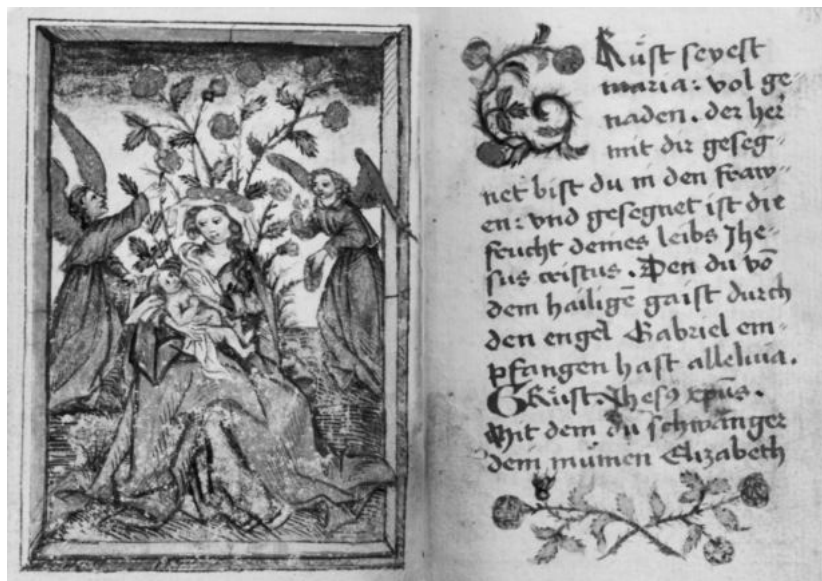 GRüst seyest
maria: vol ge-
naden. der her
mit dir geseg-
net bist du in den fraw-
en: vnd gesegnet ist die
frucht deines leibs Jhe-
sus cristus. Den du vō
dem hailigē gaist durch
den engel Gabriel em-
pfangen hast alleluia.
GRüst. Jhesꝯ xpūs.
Mit dem du schwanger
dein mumen Elizabeth